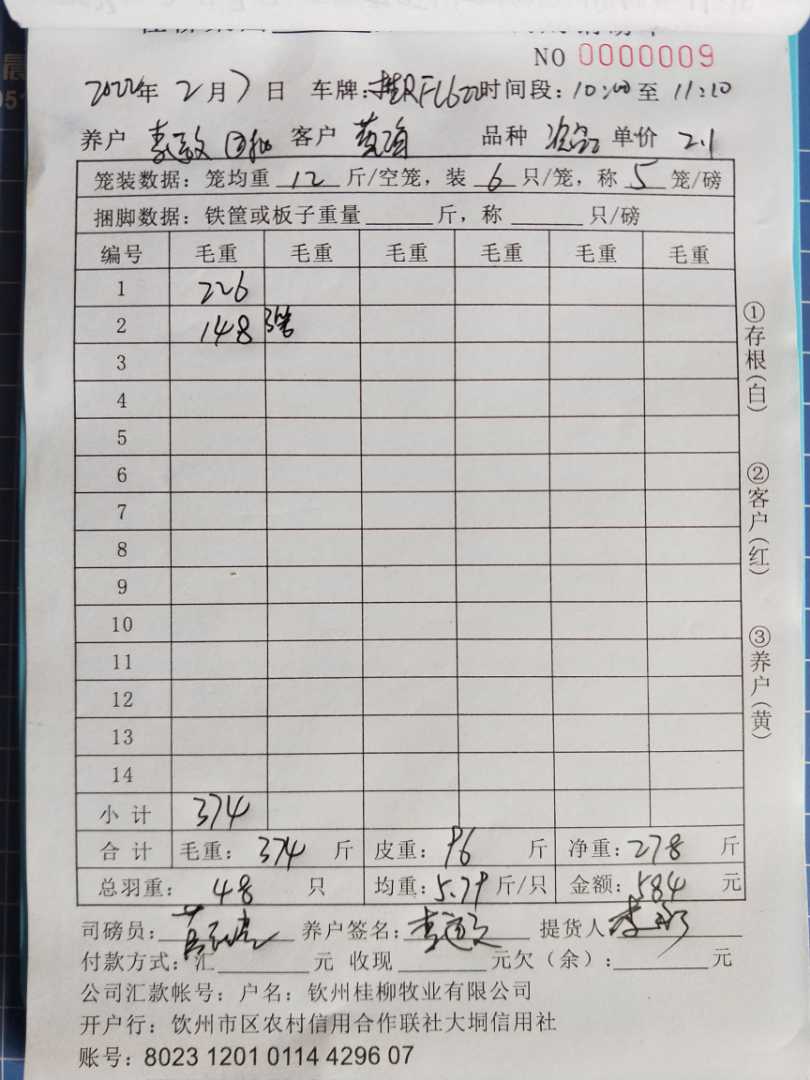 NO 0000009
2022年 2月7日 车牌:桂RFL622时间段:10:00至11:10
养户 客户 品种 单价 2.1
笼装数据:笼均重 12 斤/空笼,装 6 只/笼,称 5 笼/磅
捆脚数据:铁筐或板子重量______斤,称______只/磅
编号 毛重 毛重 毛重 毛重 毛重 毛重
1 226
2 148 3笼
3
4
5
6
7
8
9
10
11
12
13
14
小计 374
合计 毛重:374 斤 皮重:96 斤 净重:278 斤
总羽重:48 只 均重:5.79斤/只 金额:584 元
司磅员: 养户签名: 提货人
付款方式:汇______元 收现______元欠(余):______元
公司汇款帐号:户名:钦州桂柳牧业有限公司
开户行:饮州市区农村信用合作联社大垌信用社
账号:8023 1201 0114 4296 07
①存根(白)
②客户(红)
③养户(黄)